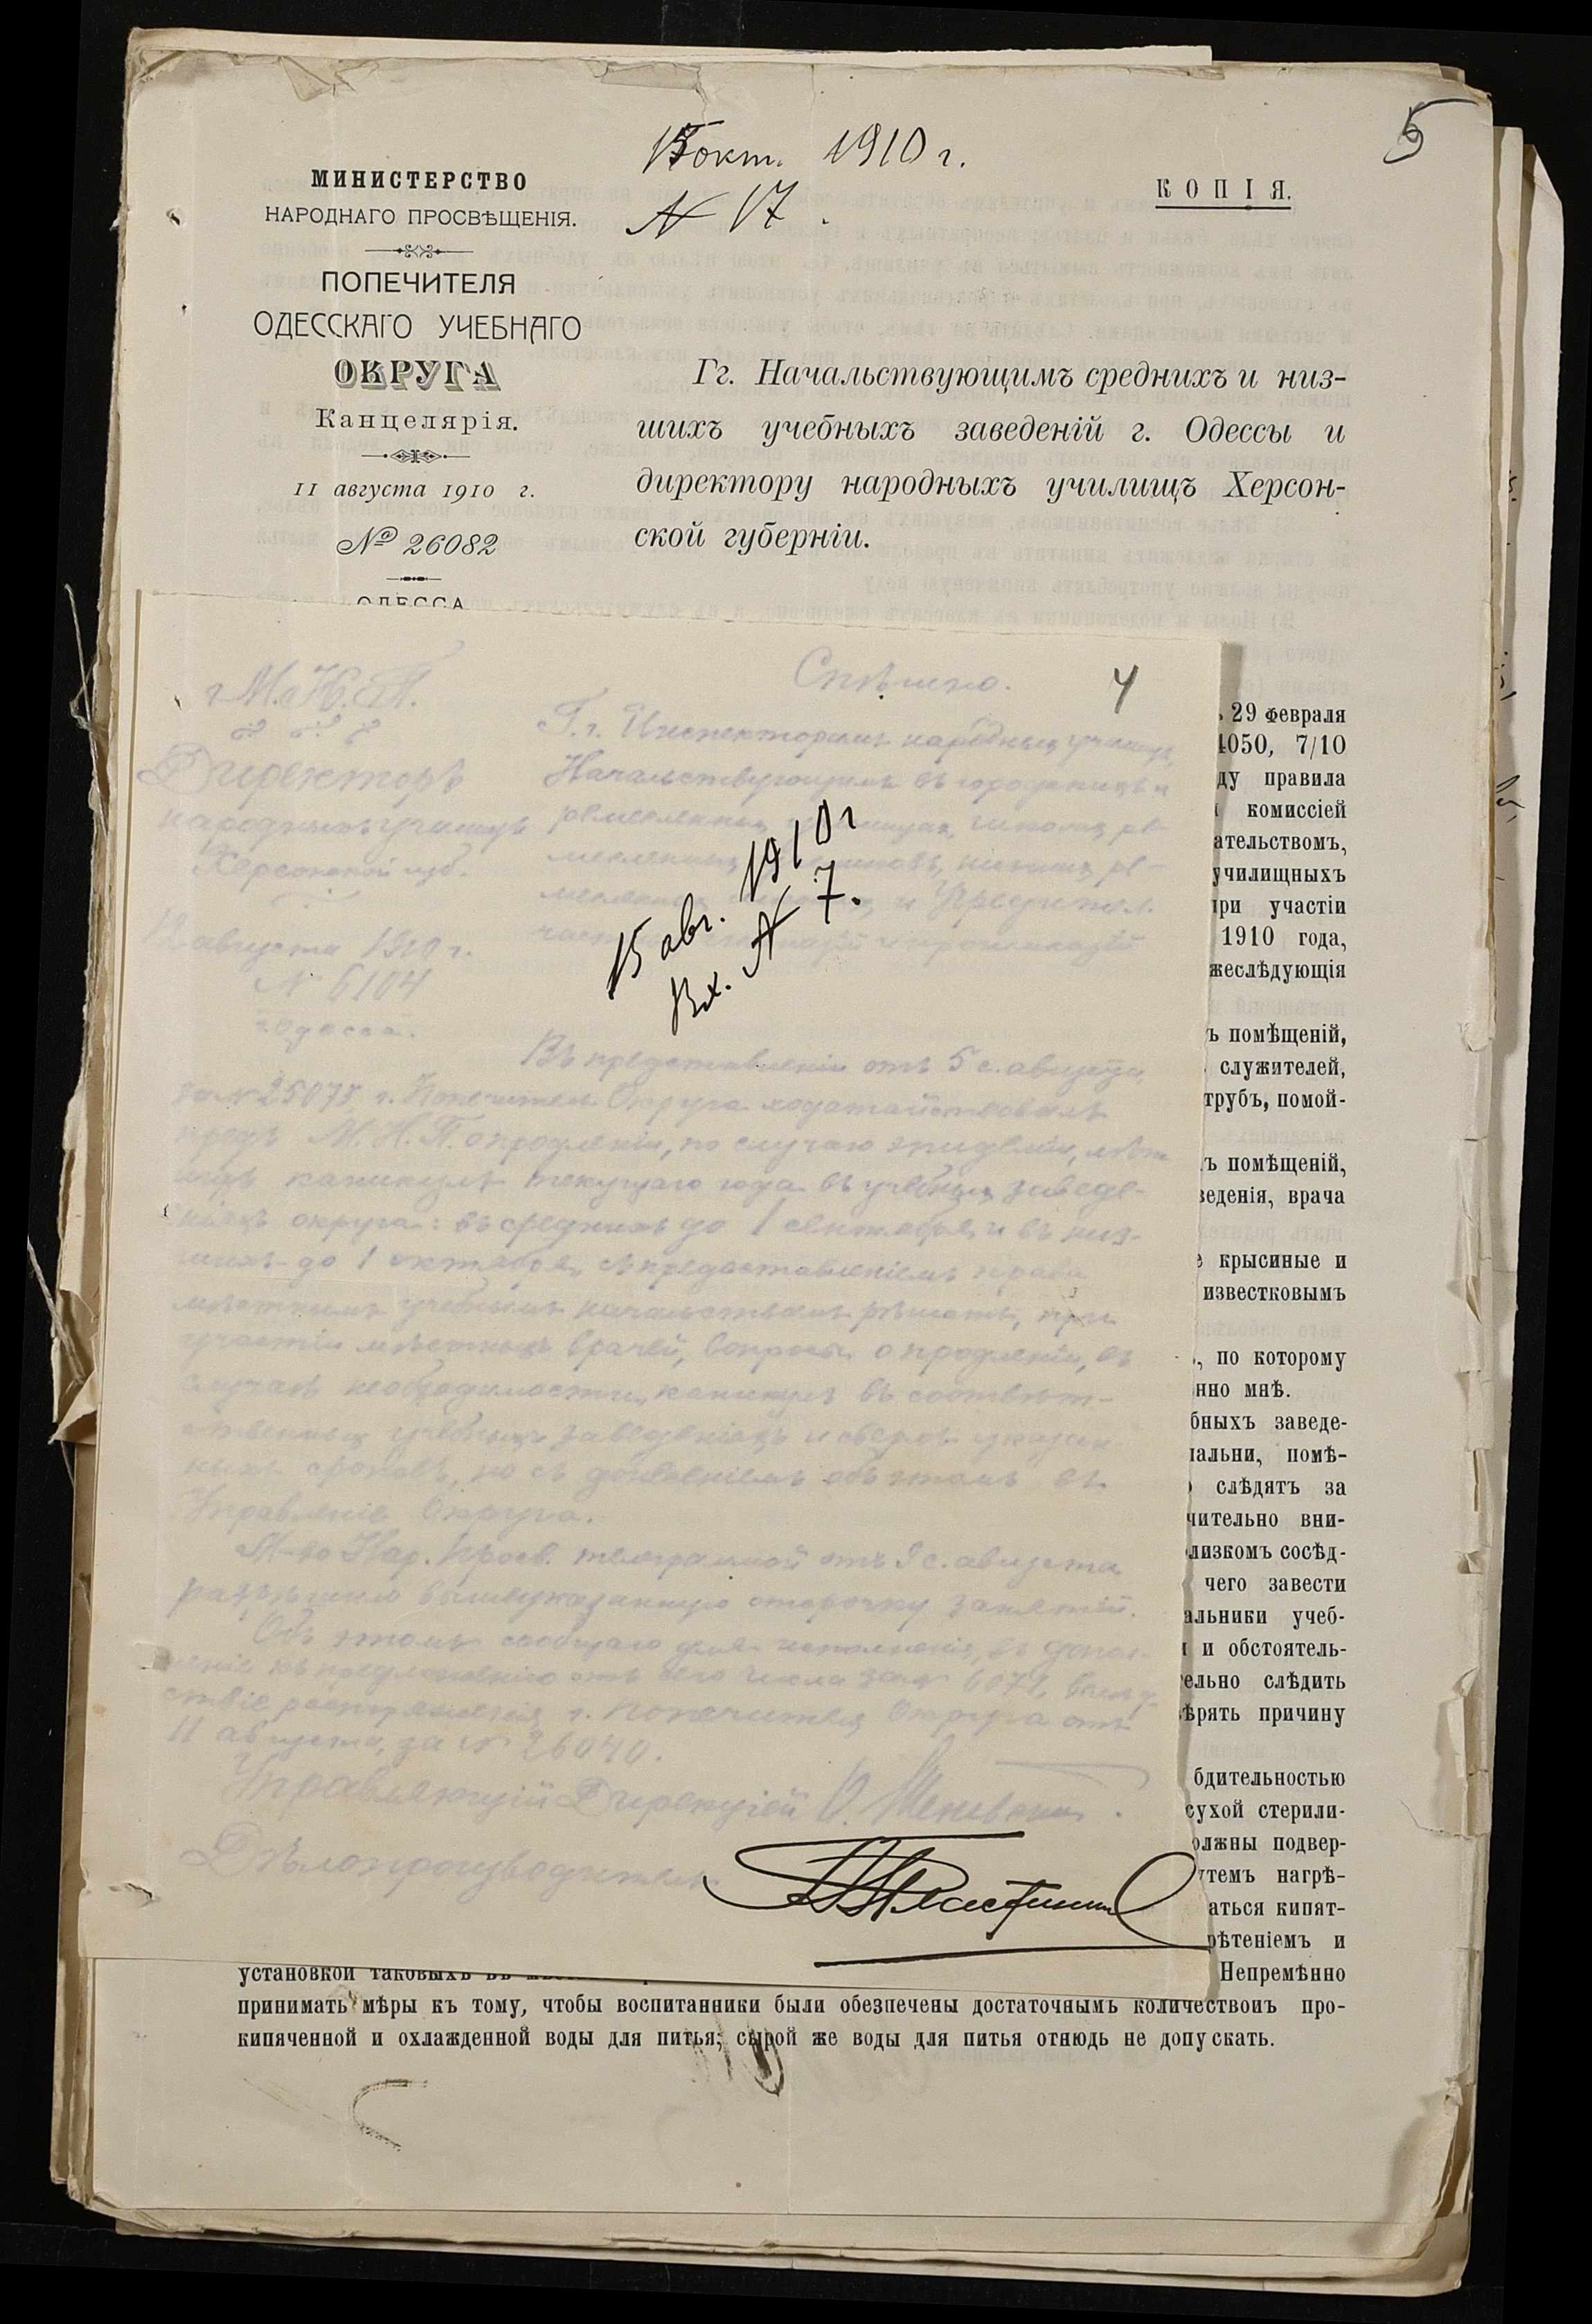 5
15 окт. 1910 г.
№ 17.
МИНИСТЕРСТВО
НАРОДНАГО ПРОСВѢЩЕНІЯ.
ПОПЕЧИТЕЛЯ
ОДЕССКАГО УЧЕБНАГО
ОКРУГА
Канцелярія.
11 августа 1910 г.
№ 26082
ОДЕССА
КОПІЯ.
Гг. Начальствующимъ среднихъ и низ-
шихъ учебныхъ заведеній г. Одессы и
директору народныхъ училищъ Херсон-
ской губерніи.
4
Спѣшно.
М. Н. П.
Директоръ
народныхъ училищъ
Херсонской губ.
12 августа 1910 г.
№ 6104
г. Одесса.
Г. г. Инспекторамъ народныхъ училищъ,
Начальствующимъ въ городскихъ и
ремесленныхъ училищахъ, школахъ ре-
месленныхъ учениковъ, низшихъ ре-
месленныхъ школахъ, и Учредител.
частныхъ гимназій и прогимназій
15 авг. 1910 г
Вх. № 7.
Въ представленіи отъ 5 с. августа,
за № 25075 г. Попечитель Округа ходатайствовалъ
предъ М. Н. П. о продленіи, по случаю эпидеміи, лѣтн
ихъ каникулъ текущаго года въ учебныхъ заведе-
ніяхъ округа: въ среднихъ до 1 сентября и въ низ-
шихъ до 1 октября, съ предоставленіемъ права
мѣстнымъ учебнымъ начальствамъ рѣшать, при
участіи мѣстныхъ врачей, вопросы о продленіи, въ
случаѣ необходимости, каникулъ въ соотвѣт-
ственныхъ учебныхъ заведеніяхъ и сверхъ указан-
ныхъ сроковъ, но съ донесеніемъ объ этомъ въ
Управленіе Округа.
М-во Нар. Просв. телеграммой отъ 9 с. августа
разрѣшило вышеуказанную отсрочку занятій.
Объ этомъ сообщаю для исполненія, въ допол-
неніе къ предложенію отъ сего числа за № 6079, вслѣд-
ствіе распоряженія г. Попечителя Округа отъ
11 августа, за № 26040.
Управляющій Дирекціей
Дѣлопроизводитель
29 февраля
4050, 7/10
ду правила
комиссіей
ательствомъ,
училищныхъ
при участіи
1910 года,
жеслѣдующія
ъ помѣщеній,
служителей,
трубъ, помой-
ъ помѣщеній,
веденія, врача
е крысиные и
известковымъ
, по которому
нно мнѣ.
бныхъ заведе-
пальни, помѣ-
слѣдятъ за
чительно вни-
лизкомъ сосѣд-
чего завести
альники учеб-
и и обстоятель-
ельно слѣдить
ѣрять причину
бдительностью
сухой стерили-
олжны подвер-
утемъ нагрѣ-
аться кипят-
рѣтеніемъ и
установкой таковыхъ въ Непремѣнно
принимать мѣры къ тому, чтобы воспитанники были обезпечены достаточнымъ количествоиъ про-
кипяченной и охлажденной воды для питья; сырой же воды для питья отнюдь не допускать.